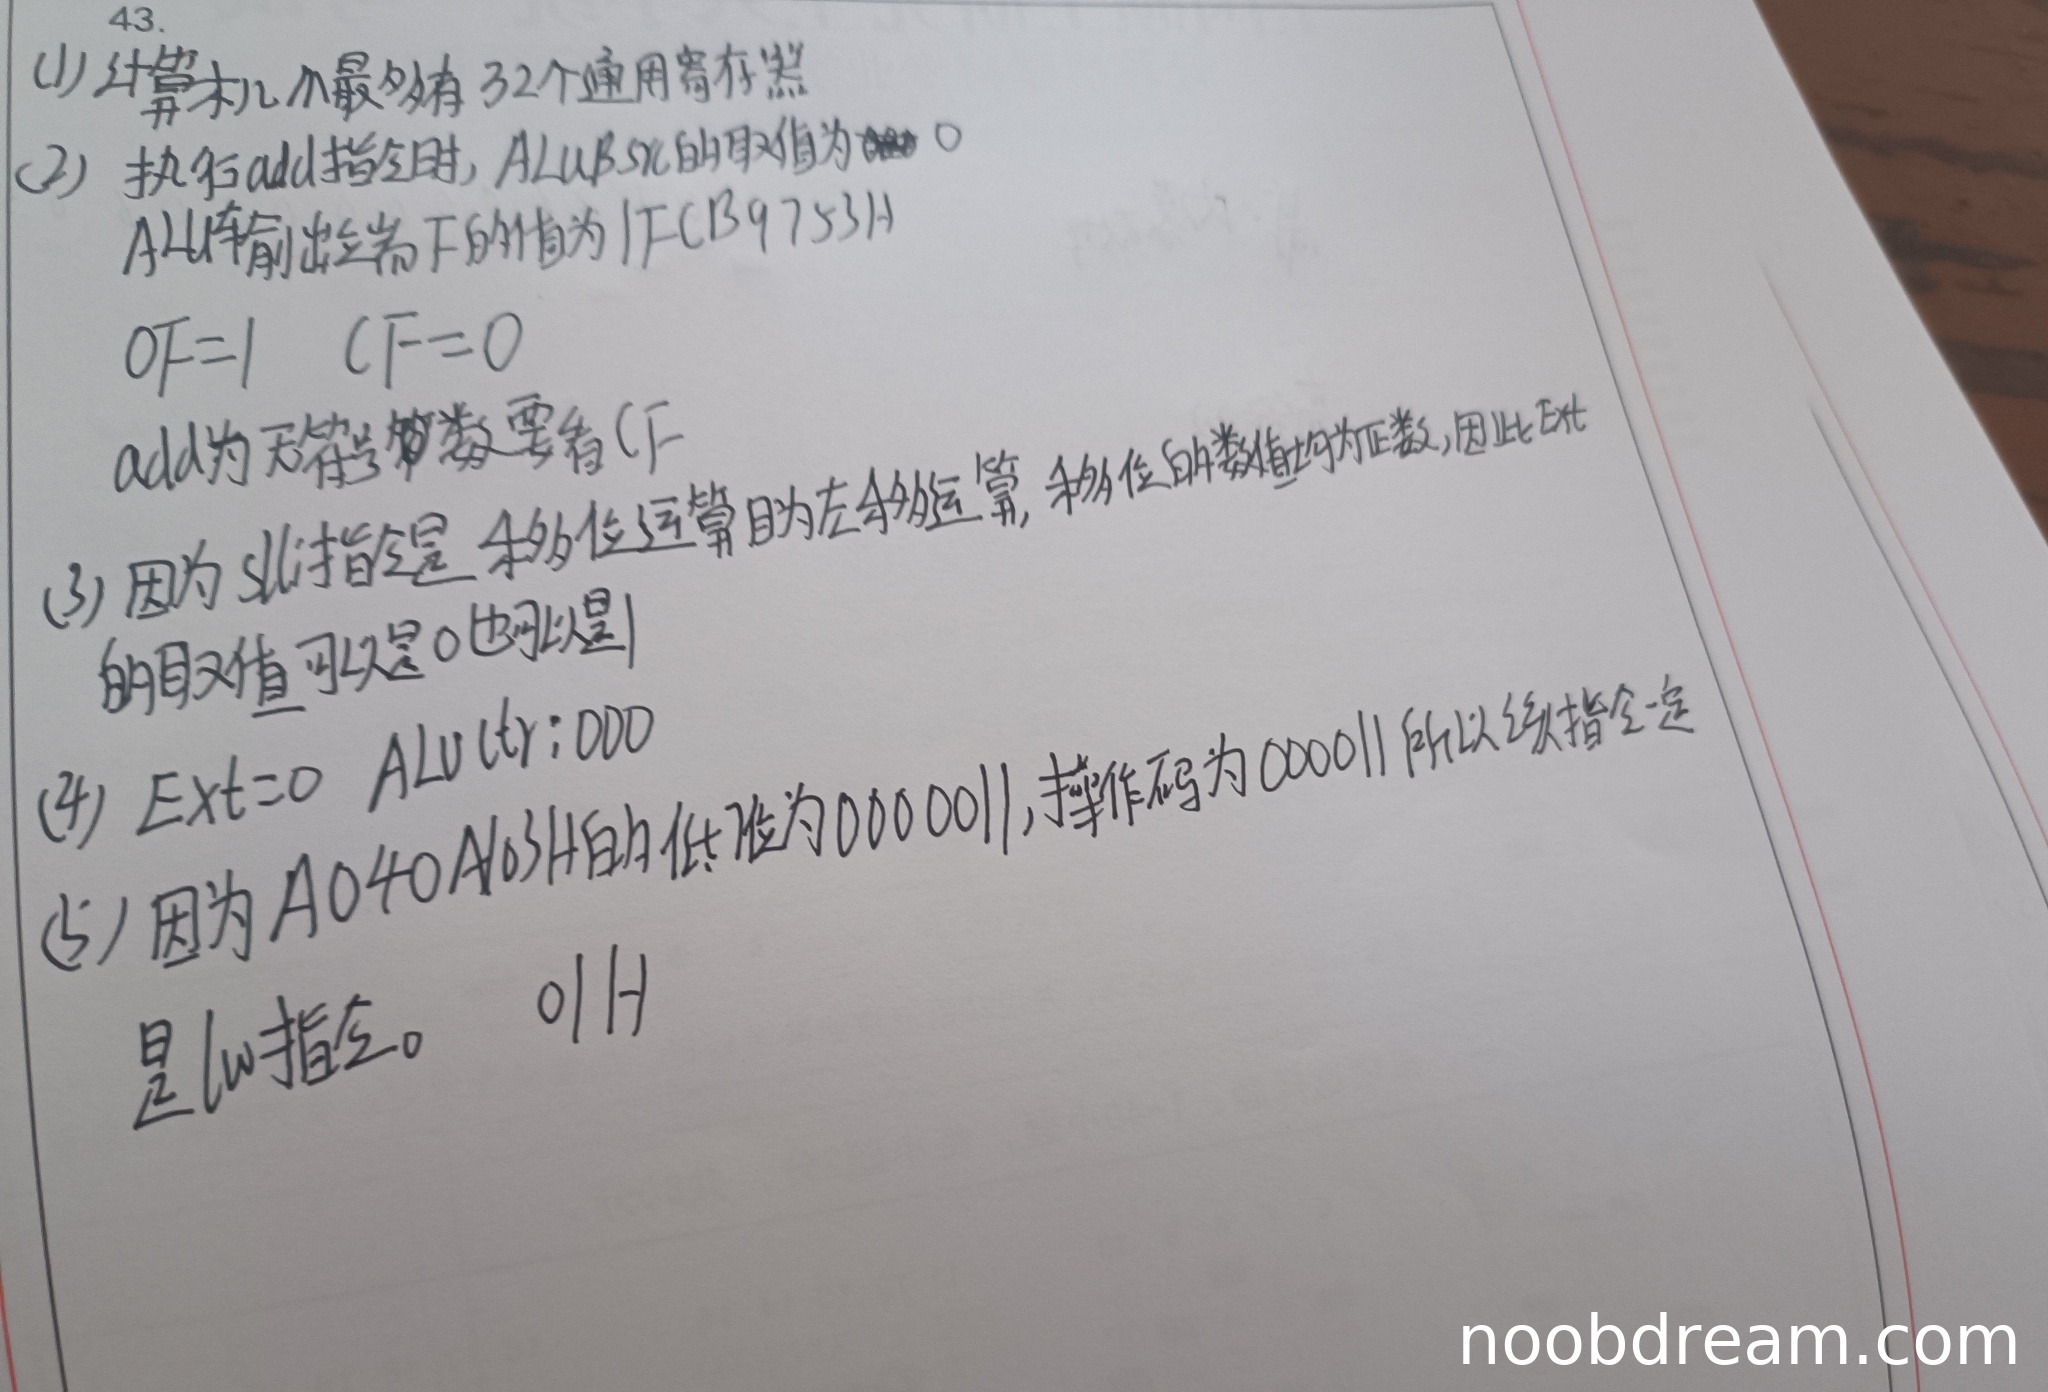 43.
(1) 计算机M最多有 32个通用寄存器
(2) 执行add指令时, ALUBSrc的取值为 0
ALU输出端F的值为 1FCB9753H
OF=1 CF=0
add为无符号数要看CF
(3) 因为slli指令是 移位运算且为左移运算, 移位的数值均为正数,因此Ext
的取值可以是0也可以是1
(4) Ext=0 ALUCtr:000
(5) 因为A040A103H的低7位为0000011,操作码为000011所以该指令一定
是lw指令。 01H
noobdream.com